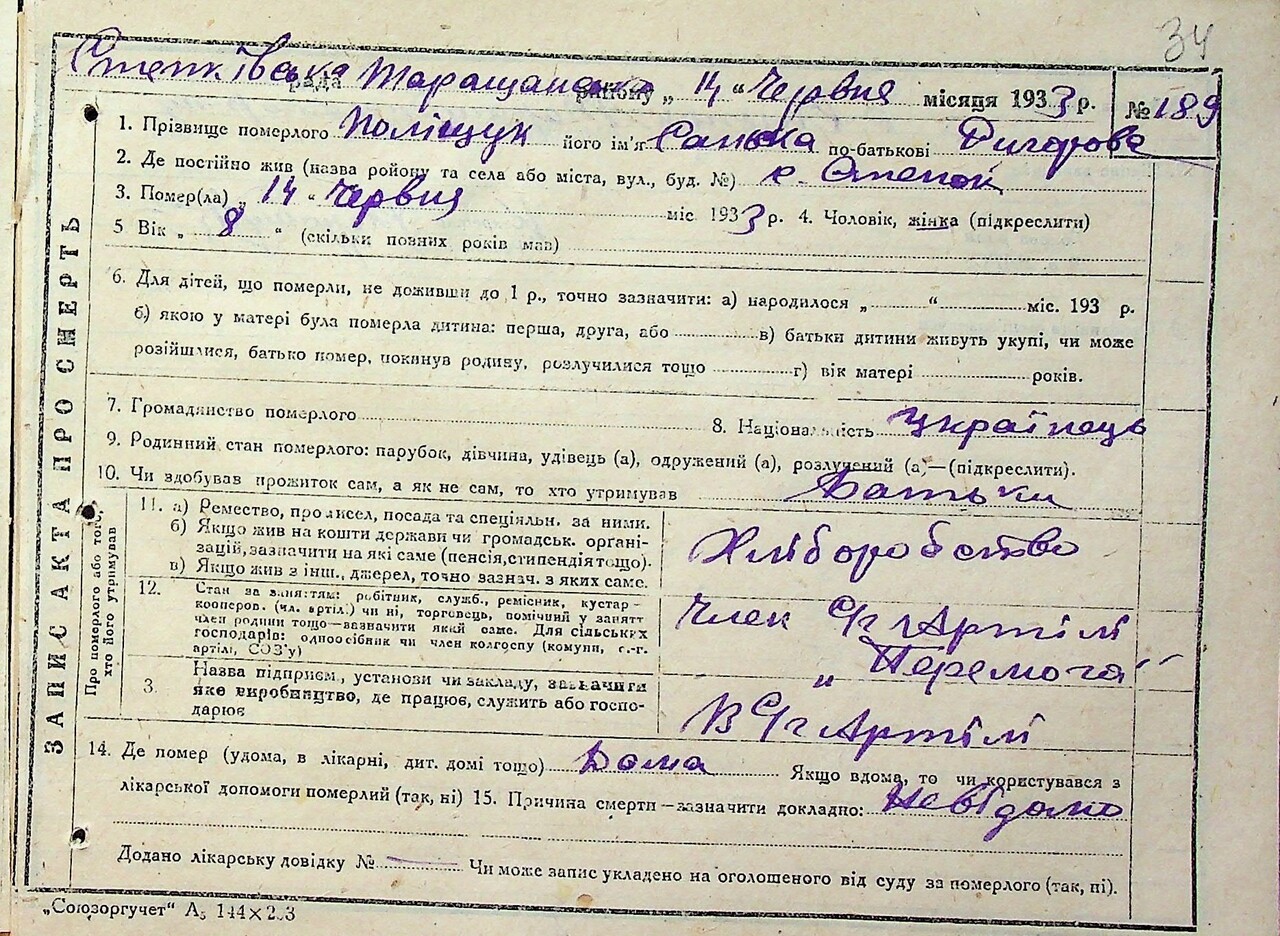 34
Степківська рада Таращанського району „ 14 “ Червня місяця 1933 р. № 189
1. Прізвище померлого Поліщук його ім'я Санька по-батькові Григорова
2. Де постійно жив (назва ройону та села або міста, вул., буд. №) с. Степок
3. Помер(ла) „ 14 “ Червня міс. 1933 р. 4. Чоловік, жінка (підкреслити)
5 Вік „ 8 “ (скільки повних років мав)
6. Для дітей, що померли, не доживши до 1 р., точно зазначити: а) народилося „ “ міс. 193 р.
б) якою у матері була померла дитина: перша, друга, або в) батьки дитини живуть укупі, чи може
розійшлися, батько помер, покинув родину, розлучилися тощо г) вік матері років.
7. Громадянство померлого 8. Національність українець
9. Родинний стан померлого: парубок, дівчина, удівець (а), одружений (а), розлучений (а)—(підкреслити).
10. Чи здобував прожиток сам, а як не сам, то хто утримував Батьки
ЗАПИС АКТА ПРО СМЕРТЬ
Про померлого або того, хто його утримував
11. а) Ремество, промисел, посада та спеціяльн. за ними.
б) Якщо жив на кошти держави чи громадськ. орґані-
зацій, зазначити на які саме (пенсія, стипендія тощо).
в) Якщо жив з інш., джерел, точно зазнач. з яких саме.
Хліборобство
12. Стан за заняттям: робітник, служб., ремісник, кустар-
кооперов. (чл. артіл.) чи ні, торговець, помічний у занятт
член родини тощо—зазначити який саме. Для сільських
господарів: одноосібник чи член колгоспу (комуни, с.-г.
артілі, СОЗ'у)
Член С/г Артілі
„Перемога“
3. Назва підприєм., установи чи закладу, зазначити
яке виробництво, де працює, служить або госпо-
дарює
В С/г Артілі
14. Де помер (удома, в лікарні, дит. домі тощо) Дома Якщо вдома, то чи користувався з
лікарської допомоги померлий (так, ні) 15. Причина смерти—зазначити докладно: Невідомо
Додано лікарську довідку № — Чи може запис укладено на оголошеного від суду за померлого (так, ні).
„Союзоргучет“ А5 144×203